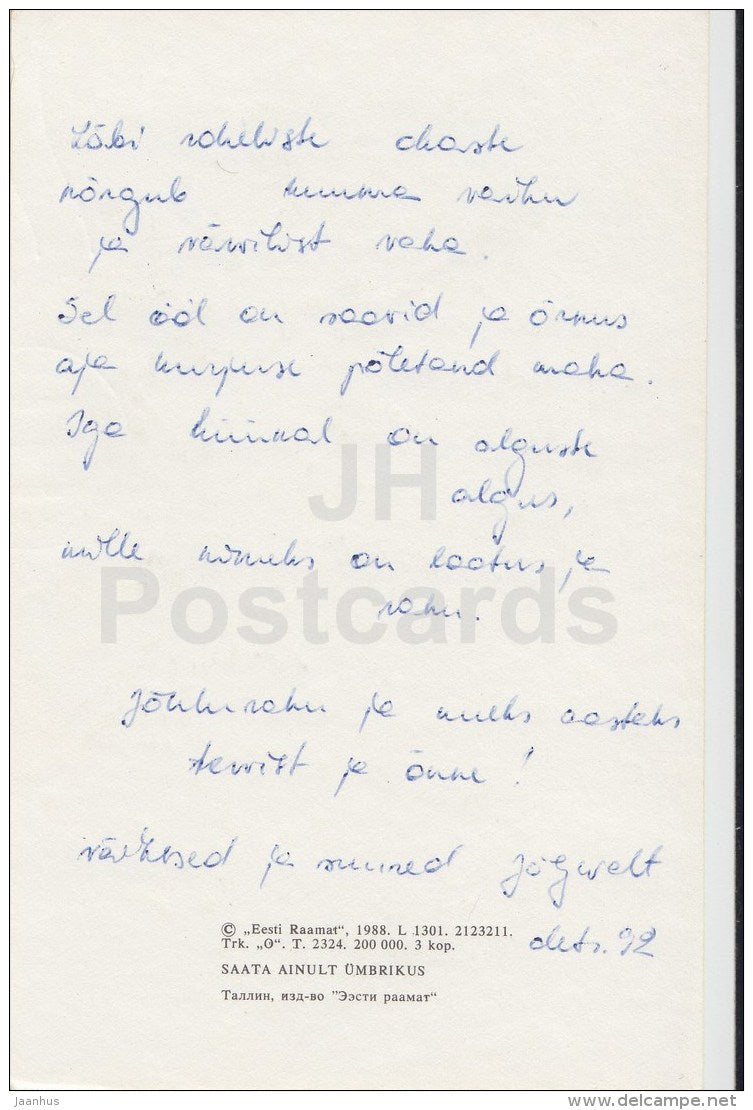 Läbi roheliste okaste
nõrgub kumma vaiku
ja värvilist vaha.
Sel ööl on soovid ja õrnus
aja kurjuse põletand maha.
Iga küünal on alguste
algus,
mille nimeks on lootus ja
rahu.
Jõulurahu ja uueks aastaks
tervist ja õnne!
väikesed ja suured
dets. 92
© „Eesti Raamat“, 1988. L 1301. 2123211.
Trk. „O“. T. 2324. 200 000. 3 kop.
SAATA AINULT ÜMBRIKUS
Таллин, изд-во ”Ээсти раамат“
JH
Postcards
Jaanhus
delcampe.net